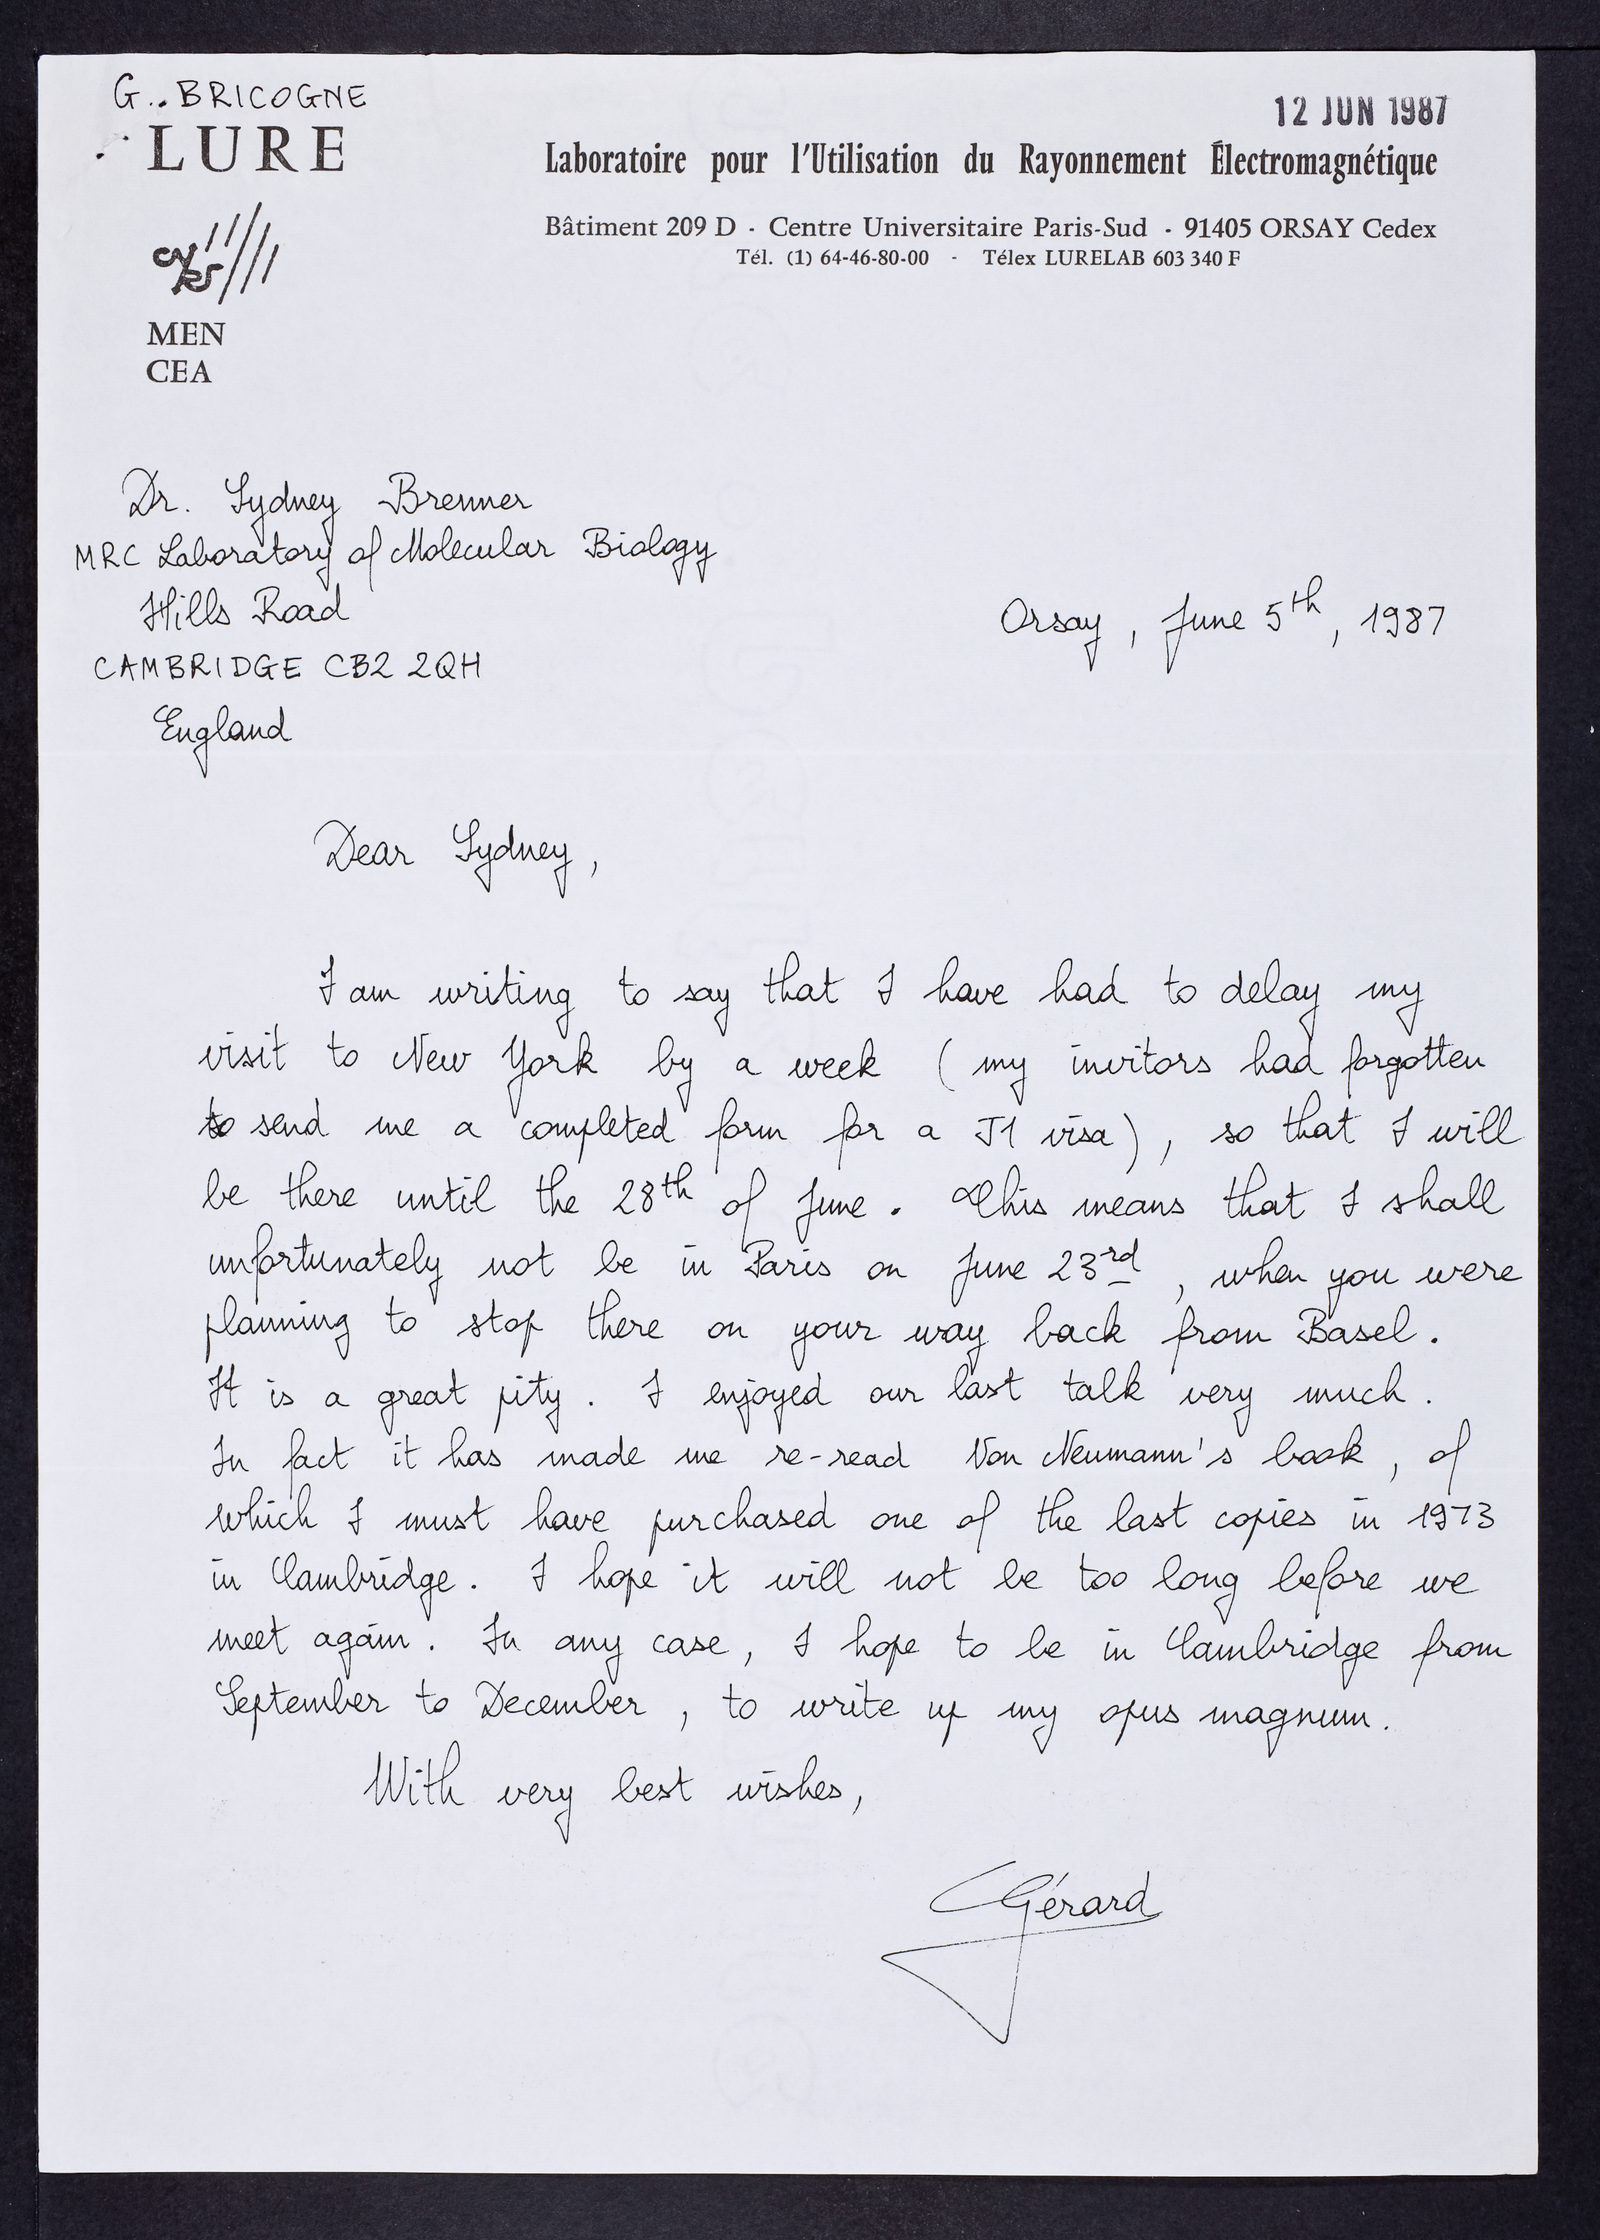 G. BRICOGNE
LURE
12 JUN 1987
Laboratoire pour l'Utilisation du Rayonnement Électromagnétique
Bâtiment 209 D - Centre Universitaire Paris-Sud - 91405 ORSAY Cedex
Tél. (1) 64-46-80-00 - Télex LURELAB 603 340 F
MEN
CEA
Dr. Sydney Brenner
MRC Laboratory of Molecular Biology
Hills Road
CAMBRIDGE CB2 2QH
England
Orsay, June 5th, 1987
Dear Sydney,
I am writing to say that I have had to delay my
visit to New York by a week (my invitors had forgotten
to send me a completed form for a J1 visa), so that I will
be there until the 28th of June. This means that I shall
unfortunately not be in Paris on June 23rd, when you were
planning to stop there on your way back from Basel.
It is a great pity. I enjoyed our last talk very much.
In fact it has made me re-read Von Neumann's book, of
which I must have purchased one of the last copies in 1973
in Cambridge. I hope it will not be too long before we
meet again. In any case, I hope to be in Cambridge from
September to December, to write up my opus magnum.
With very best wishes,
Gérard